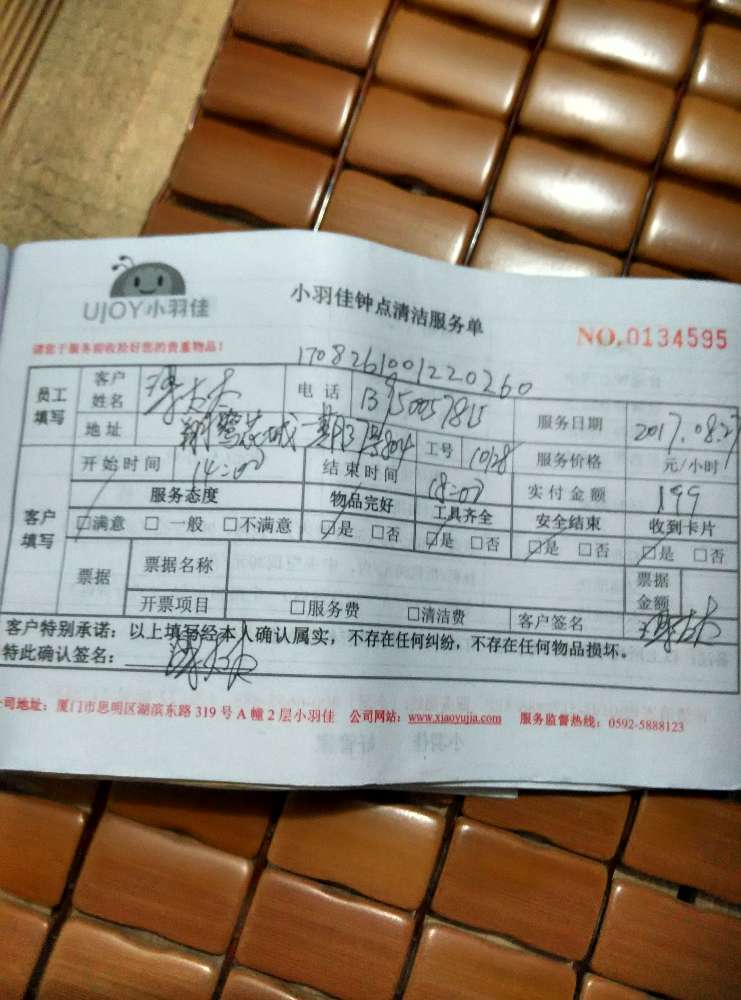 UJOY小羽佳
小羽佳钟点清洁服务单
NO.0134595
请您于服务前收拾好您的贵重物品!
1708261001220260
员工填写 客户姓名 电话 服务日期 2017.08.27
地址 工号 1028 服务价格 元/小时
客户填写 开始时间 14:00 结束时间 18:00 实付金额 199
服务态度 物品完好 工具齐全 安全结束 收到卡片
□满意 □一般 □不满意 □是 □否 □是 □否 □是 □否 □是 □否
票据 票据名称 票据金额
开票项目 □服务费 □清洁费 客户签名
客户特别承诺:以上填写经本人确认属实,不存在任何纠纷,不存在任何物品损坏。
特此确认签名:
司地址:厦门市思明区湖滨东路 319 号 A 幢 2 层小羽佳 公司网站:www.xiaoyujia.com 服务监督热线:0592-5888123